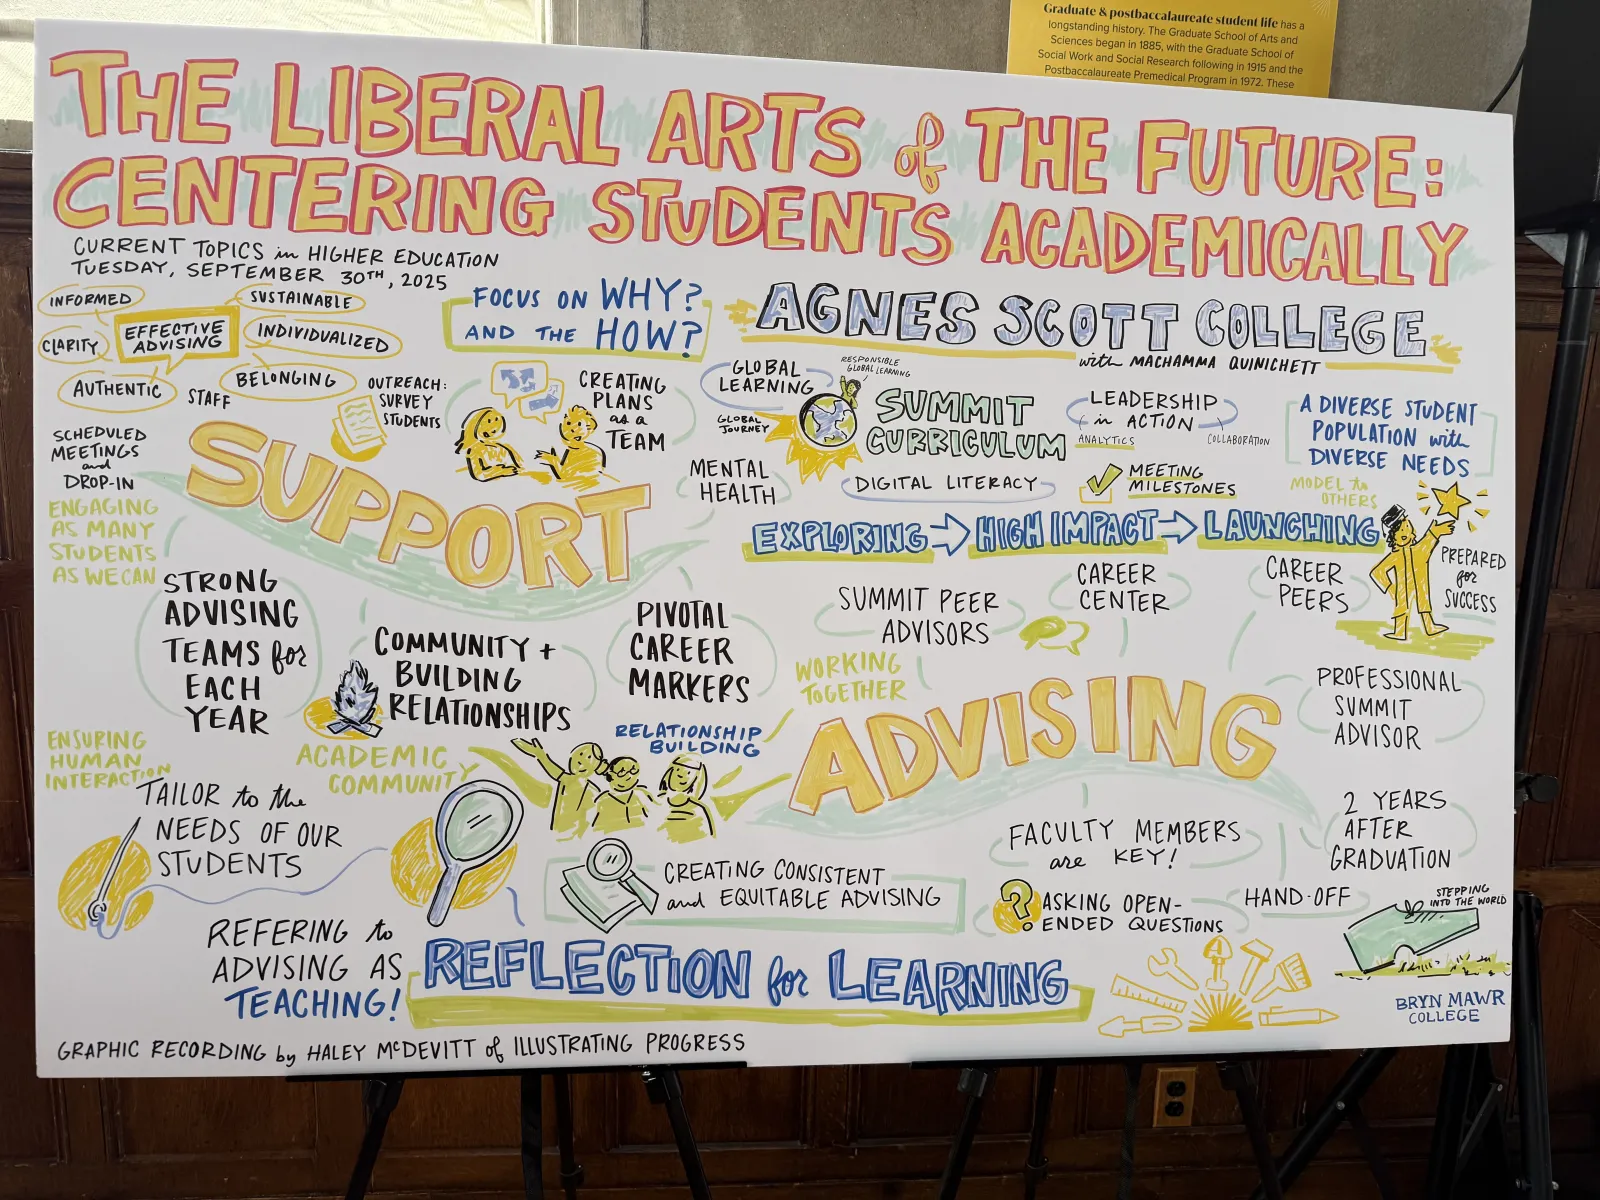 Graduate & postbaccalaureate student life has a
longstanding history. The Graduate School of Arts and
Sciences began in 1885, with the Graduate School of
Social Work and Social Research following in 1915 and the
Postbaccalaureate Premedical Program in 1972. These
THE LIBERAL ARTS of THE FUTURE:
CENTERING STUDENTS ACADEMICALLY
CURRENT TOPICS in HIGHER EDUCATION
TUESDAY, SEPTEMBER 30TH, 2025
INFORMED
SUSTAINABLE
EFFECTIVE
ADVISING
INDIVIDUALIZED
CLARITY
BELONGING
AUTHENTIC
STAFF
FOCUS ON WHY?
AND THE HOW?
OUTREACH:
SURVEY
STUDENTS
CREATING
PLANS
as a
TEAM
SCHEDULED
MEETINGS
and
DROP-IN
ENGAGING
AS MANY
STUDENTS
AS WE CAN
SUPPORT
MENTAL
HEALTH
STRONG
ADVISING
TEAMS for
EACH
YEAR
COMMUNITY +
BUILDING
RELATIONSHIPS
PIVOTAL
CAREER
MARKERS
ENSURING
HUMAN
INTERACTION
ACADEMIC
COMMUNITY
RELATIONSHIP
BUILDING
TAILOR to the
NEEDS OF OUR
STUDENTS
AGNES SCOTT COLLEGE
with MACHAMMA QUINICHETT
GLOBAL
LEARNING
RESPONSIBLE
GLOBAL LEARNING
GLOBAL
JOURNEY
SUMMIT
CURRICULUM
LEADERSHIP
in ACTION
ANALYTICS
COLLABORATION
A DIVERSE STUDENT
POPULATION with
DIVERSE NEEDS
DIGITAL LITERACY
MEETING
MILESTONES
MODEL to
OTHERS
EXPLORING → HIGH IMPACT → LAUNCHING
PREPARED
for
SUCCESS
SUMMIT PEER
ADVISORS
CAREER
CENTER
CAREER
PEERS
WORKING
TOGETHER
ADVISING
PROFESSIONAL
SUMMIT
ADVISOR
FACULTY MEMBERS
are KEY!
2 YEARS
AFTER
GRADUATION
CREATING CONSISTENT
and EQUITABLE ADVISING
? ASKING OPEN-
ENDED QUESTIONS
HAND-OFF
STEPPING
INTO THE WORLD
REFERING to
ADVISING AS
TEACHING!
REFLECTION for LEARNING
BRYN MAWR
COLLEGE
GRAPHIC RECORDING by HALEY McDEVITT of ILLUSTRATING PROGRESS